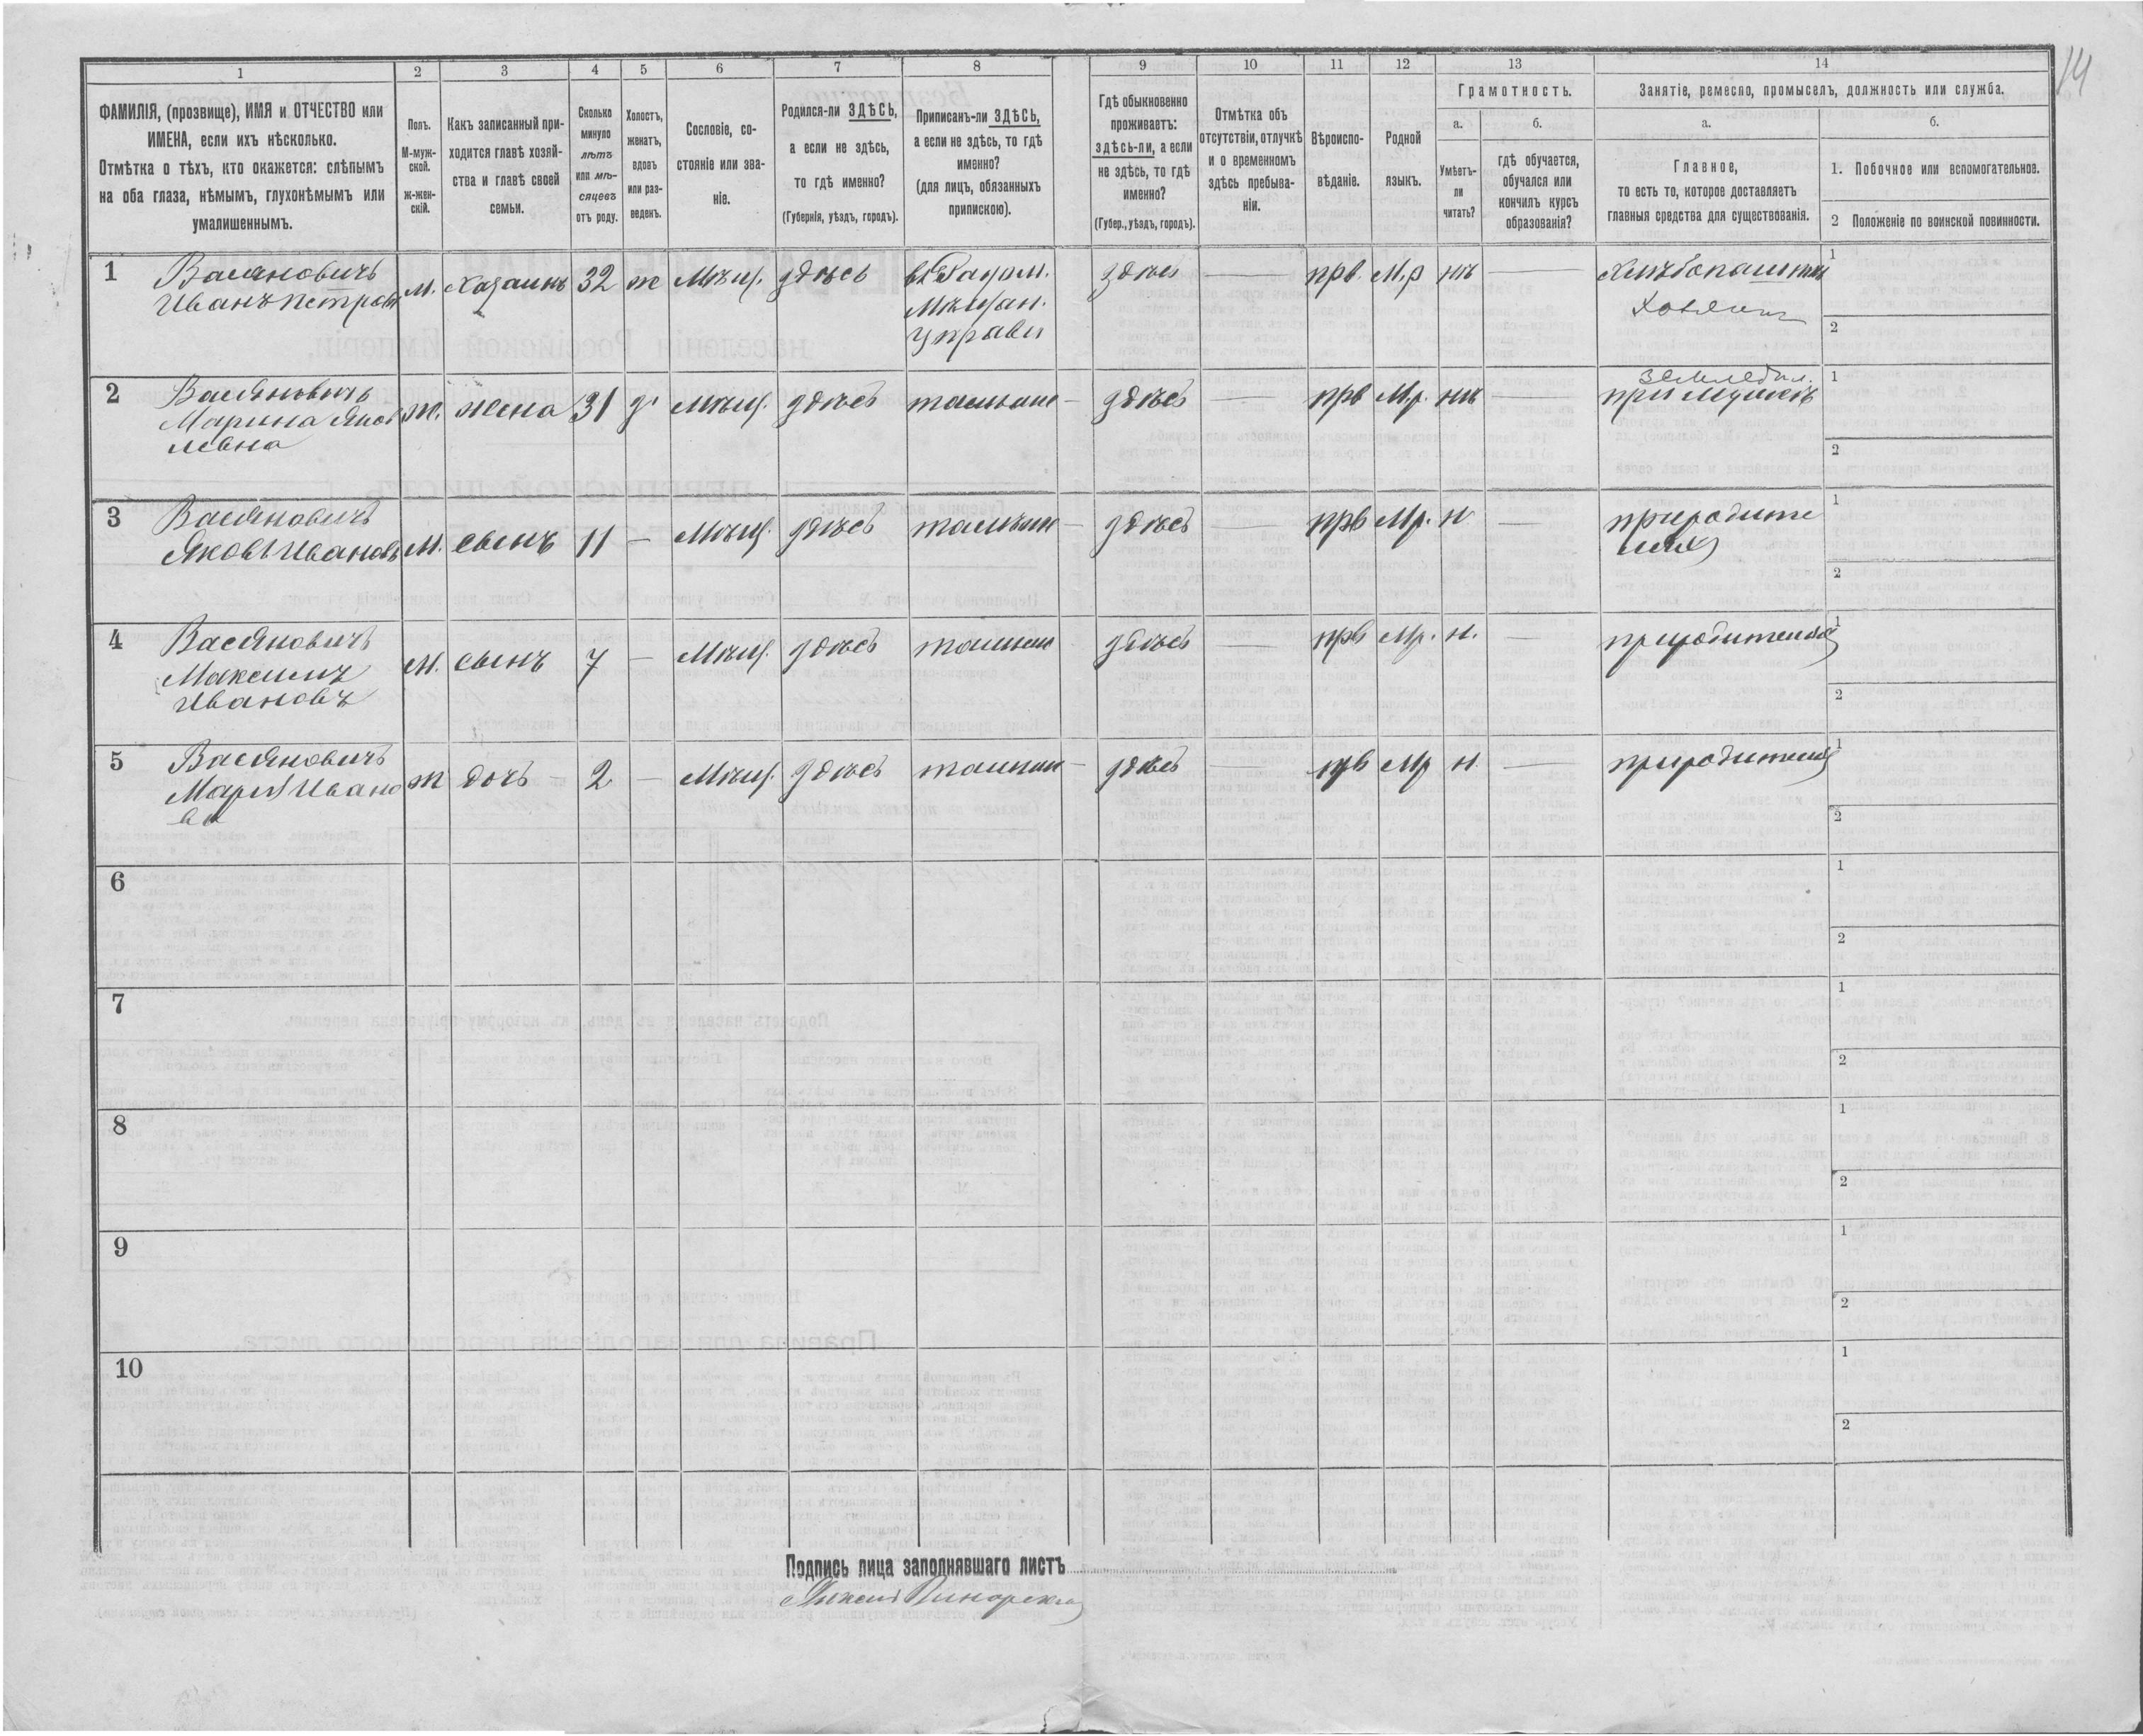 14
1 2 3 4 5 6 7 8 9 10 11 12 13 14
ФАМИЛІЯ, (прозвище), ИМЯ и ОТЧЕСТВО или
ИМЕНА, если ихъ нѣсколько.
Отмѣтка о тѣхъ, кто окажется: слѣпымъ
на оба глаза, нѣмымъ, глухонѣмымъ или
умалишеннымъ.
Полъ.
М-муж-
ской.
ж-жен-
скій.
Какъ записанный при-
ходится главѣ хозяй-
ства и главѣ своей
семьи.
Сколько
минуло
лѣтъ
или мѣ-
сяцевъ
отъ роду.
Холостъ,
женатъ,
вдовъ
или раз-
веденъ.
Сословіе, со-
стояніе или зва-
ніе.
Родился-ли ЗДѢСЬ,
а если не здѣсь,
то гдѣ именно?
(Губернія, уѣздъ, городъ).
Приписанъ-ли ЗДѢСЬ,
а если не здѣсь, то гдѣ
именно?
(для лицъ, обязанныхъ
припискою).
Гдѣ обыкновенно
проживаетъ:
здѣсь-ли, а если
не здѣсь, то гдѣ
именно?
(Губер., уѣздъ, городъ).
Отмѣтка объ
отсутствіи, отлучкѣ
и о временномъ
здѣсь пребыва-
ніи.
Вѣроиспо-
вѣданіе.
Родной
языкъ.
Грамотность.
а.
Умѣетъ-
ли
читать?
б.
гдѣ обучается,
обучался или
кончилъ курсъ
образованія?
Занятіе, ремесло, промыселъ, должность или служба.
а.
Главное,
то есть то, которое доставляетъ
главныя средства для существованія.
б.
1. Побочное или вспомогательное.
2 Положеніе по воинской повинности.
1 Васяновичъ
Иванъ Петровъ
м. хазаинъ 32 ж Мѣщ. здѣсь
Мѣщан.
управы
здѣсь — прв. М.р нѣ —
Хлѣбопашецъ
Хозяинъ
1
2
2 Васяновичъ
Марина Яков
левна
ж. жена 31 з. Мѣщ. здѣсь — здѣсь — прв М.р. нѣ —
земледѣл.
при мужѣ
1
2
3 Васяновичъ
Яковъ Ивановъ
м. сынъ 11 — Мѣщ. здѣсь — здѣсь — прв Мр. н —
природите
ляхъ
1
2
4 Васяновичъ
Максимъ
Ивановъ
м. сынъ 7 — Мѣщ. здѣсь здѣсь — прв Мр. н. —
природителяхъ
1
2
5 Васяновичъ
Марія Ивано
ва
ж дочь 2 — Мѣщ. здѣсь — здѣсь — прв Мр н —
природителяхъ
1
2
6
1
2
7
1
2
8
1
2
9
1
2
10
1
2
Подпись лица заполнявшаго листъ